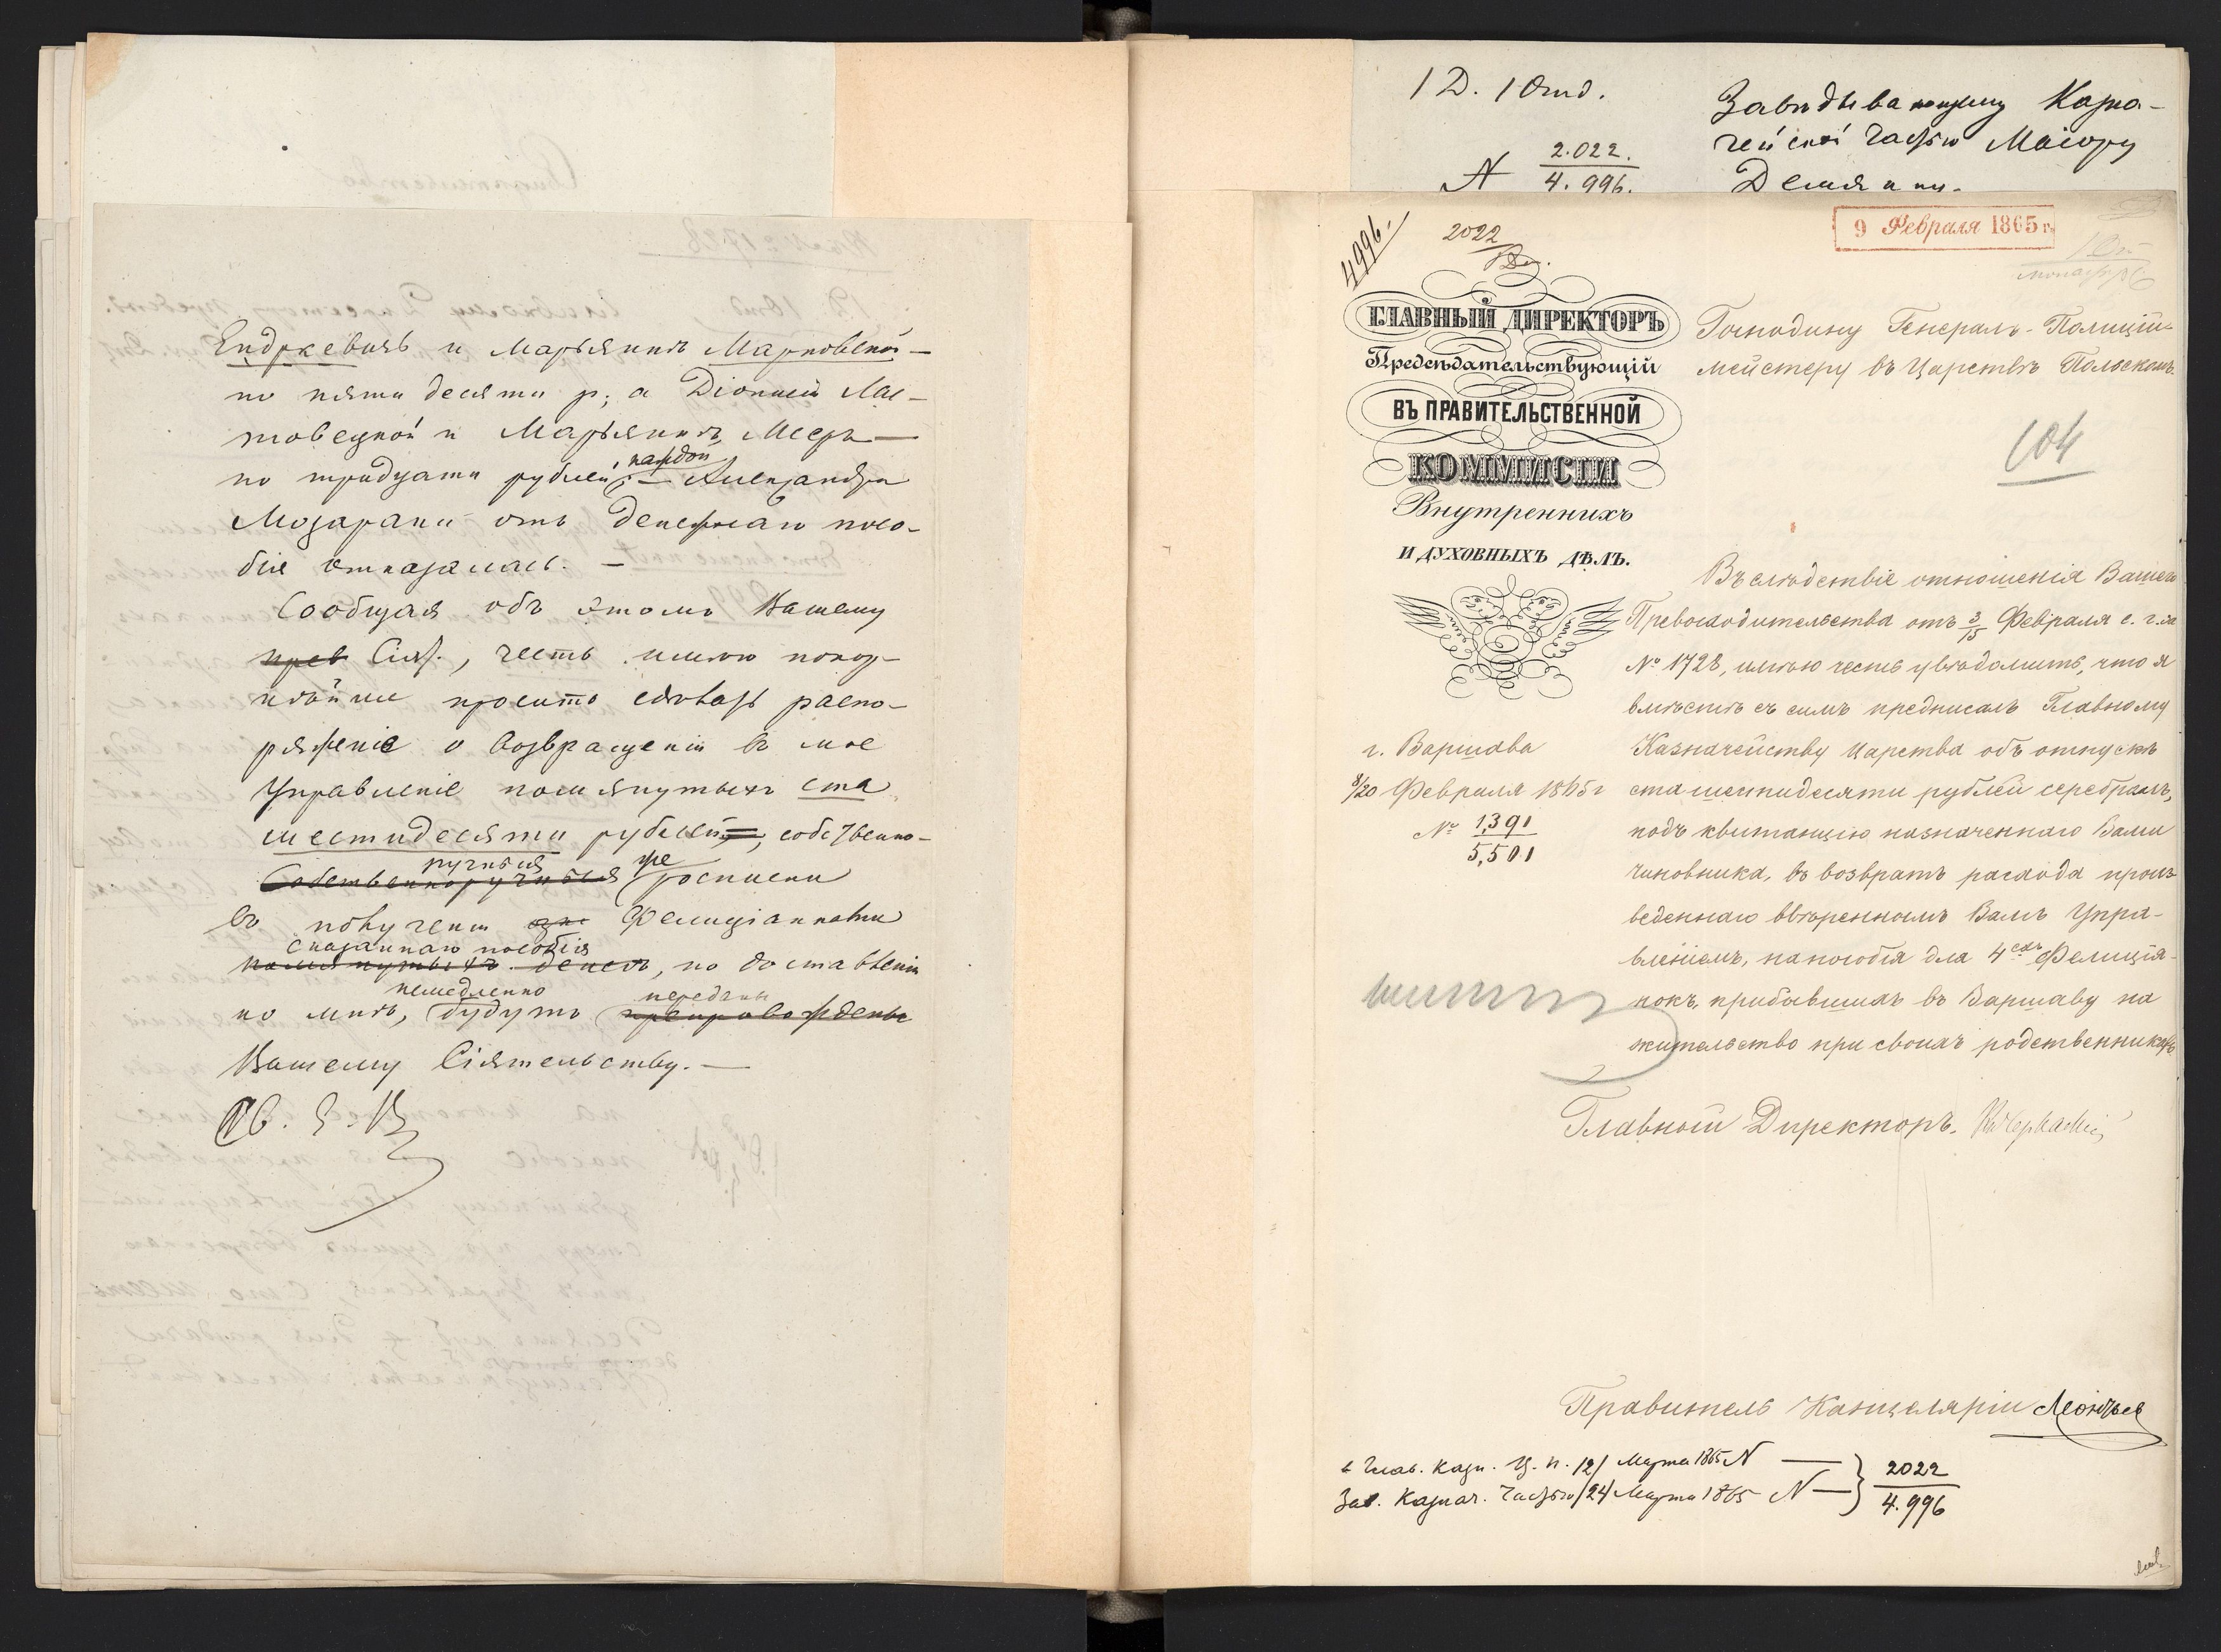 Ендржевичъ и Марьянне Марковской —
по пяти десяти р; а Діонизіи Лас-
товецкой и Марьяннѣ Меер —
каждой
по тридцати рублей; — Александра
Мозараки отъ денежнаго посо-
бія отказалась. —
Сообщая объ этомъ Вашему
прев Сіят., честь имѣю покор-
нѣйше просить сдѣлать распо-
ряженіе о возвращеніи въ мое
Управленіе помянутыхъ ста
шестидесяти рублей, собственно-
ручныя же
Собственноручныя росписки
въ полученіи Фелиціанками
сказаннаго пособія
помянутыхъ денегъ, по доставленіи
немедленно переданы
ко мнѣ, будутъ препровождены
Вашему Сіятельству. —
1 Д. 1 Отд.
Завѣдывающему Казна-
чейской частью Маіору
№ 2.022.
4.996.
4996.
2022
9 Февраля 1865 г.
ГЛАВНЫЙ ДИРЕКТОРЪ
Предсѣдательствующій
ВЪ ПРАВИТЕЛЬСТВЕННОЙ
КОММИСІИ
Внутреннихъ
И ДУХОВНЫХЪ ДѢЛЪ.
г. Варшава
8/20 Февраля 1865 г
№ 1,391
5,501
Господину Генералъ-Полиціи-
мейстеру въ Царствѣ Польскомъ.
104
Въ слѣдствіе отношенія Вашего
Превосходительства отъ 3/15 Февраля с. г. за
№ 1728, имѣю честь увѣдомить, что я
вмѣстѣ съ симъ предписалъ Главному
Казначейству Царства объ отпускѣ
ста шестидесяти рублей серебромъ,
подъ квитанцію назначеннаго Вами
чиновника, въ возвратъ расхода произ-
веденнаго ввѣреннымъ Вамъ Упра-
вленіемъ, на пособія для 4ехъ Фелиціа-
нокъ, прибывшихъ въ Варшаву на
жительство при своихъ родственникахъ
Главный Директоръ, Кн Черкаскій
Правитель Канцеляріи Леонтьев
в Глав. Казн. Ц. П. 12/ Марта 1865 № — } 2022
Зав. Казнач. Частью /24 Марта 1865 № — 4.996